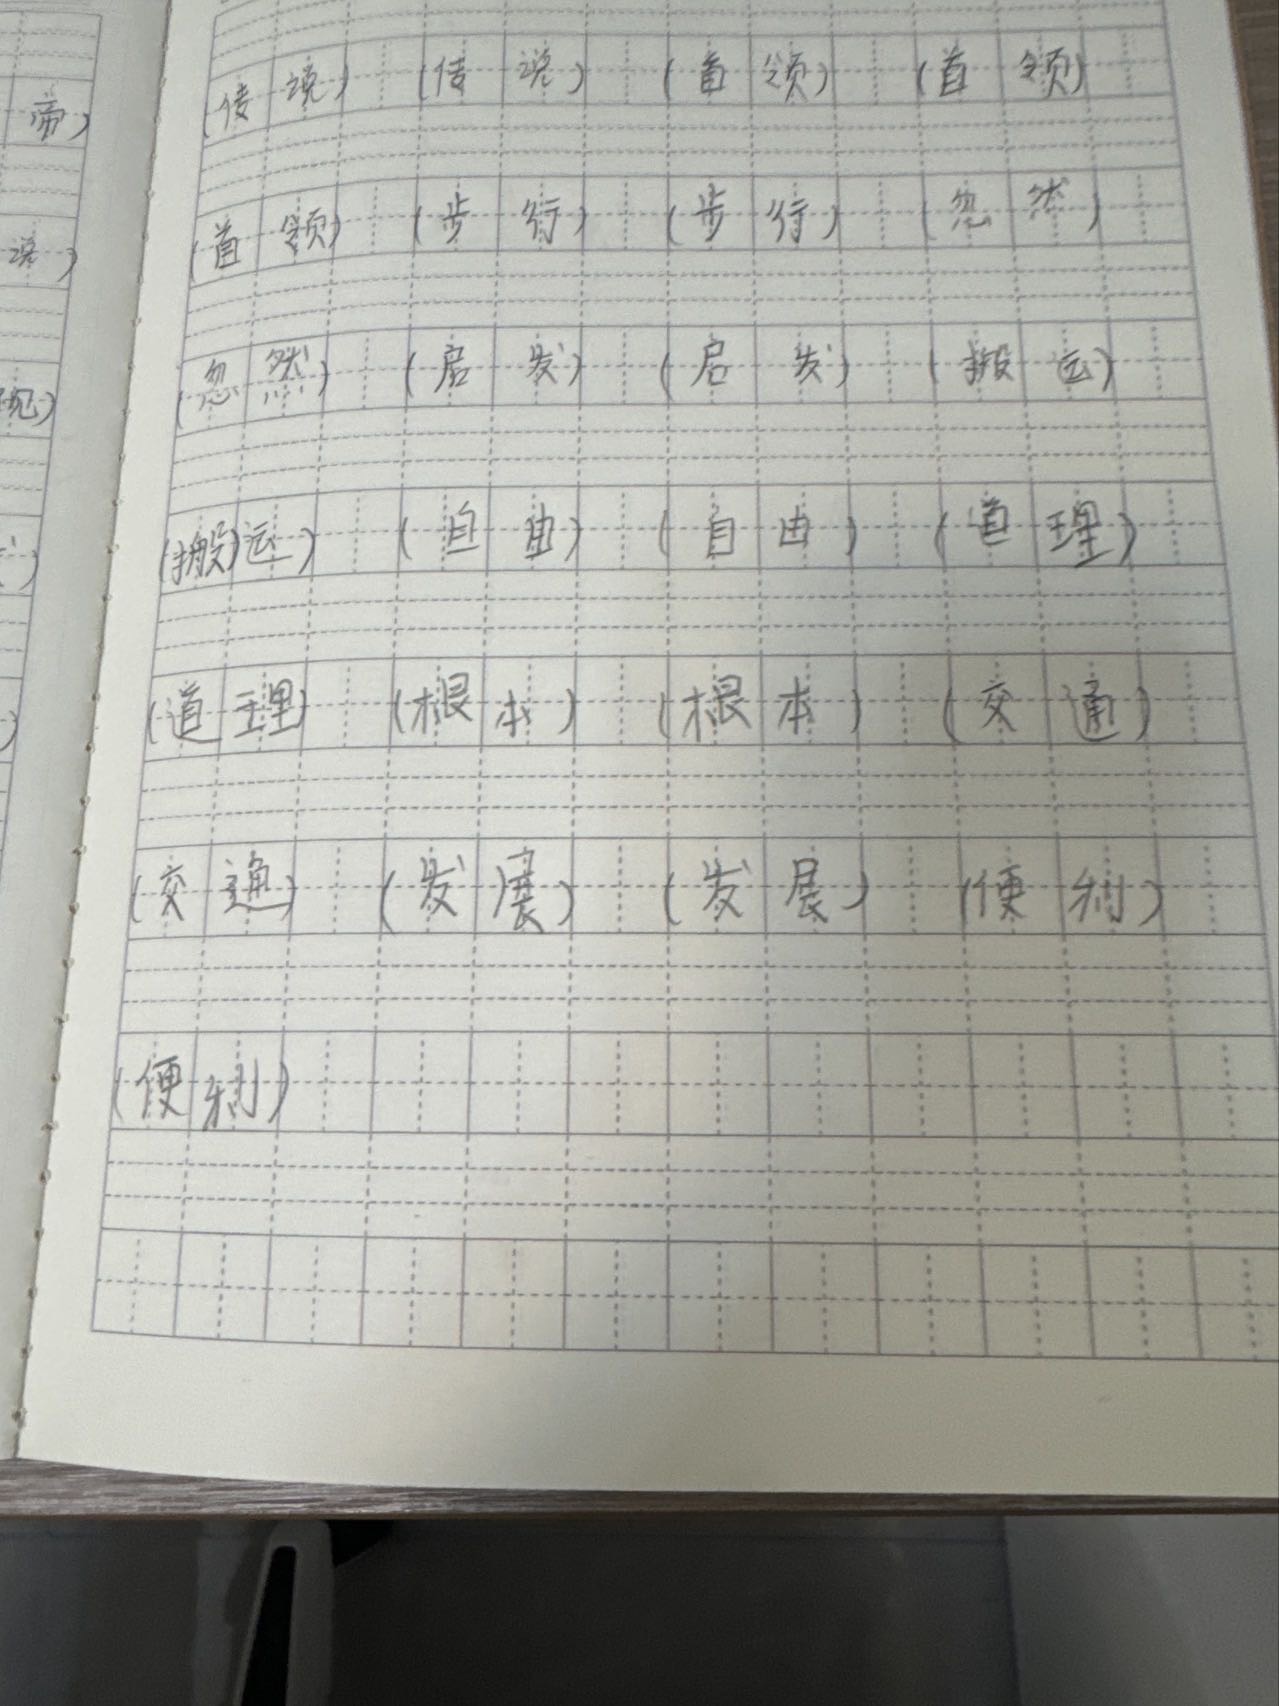 帝)
说)
(传说) (传说) (首领) (首领)
(首领) (步行) (步行) (忽然)
(忽然) (启发) (启发) (搬运)
(搬运) (自由) (自由) (道理)
(道理 (根本) (根本) (交通)
(交通) (发展) (发展) (便利)
(便利)